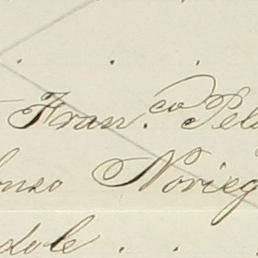 Fran.co Pela
onso Norieg
dole . .